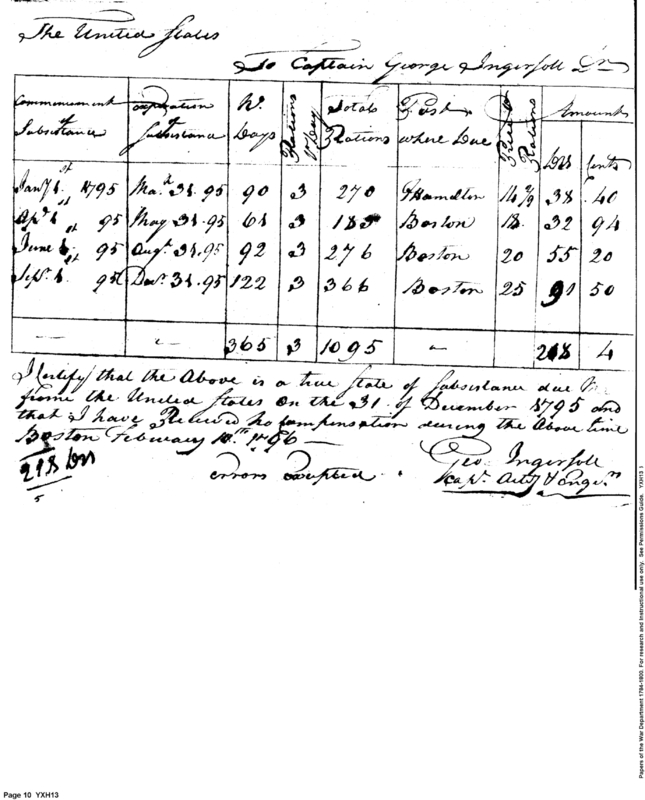 The United States
To Captain George Ingersoll Dr
Commencement of Subsistance | expiration of Subsistance | No. Days | Rations pr Day | Total Rations | Post where Due | Price of Rations | Amount Dls | Cents
Jany 1st 1795 | Mar. 31. 95 | 90 | 3 | 270 | Ft Hamelton | 14 2/9 | 38 | 40
Apr 1st 95 | May 31. 95 | 61 | 3 | 183 | Boston | 18 | 32 | 94
June 1st 95 | Augt 31. 95 | 92 | 3 | 276 | Boston | 20 | 55 | 20
Sepr. 1. 95 | Decr. 31. 95 | 122 | 3 | 366 | Boston | 25 | 91 | 50
— | " | 365 | 3 | 1095 | " | | 218 | 4
I Certify that the Above is a true State of Subsistance due Me
frome the United States on the 31. of December 1795 and
that I have Recived no Compensation during the Above time
Boston February 10.th 1796 —
218 Drs
5
errors excepted .
Geo. Ingersoll
Capt. Arty & Engrs
Papers of the War Department 1784-1800. For research and instructional use only. See Permissions Guide. YXH13 1
Page 10 YXH13